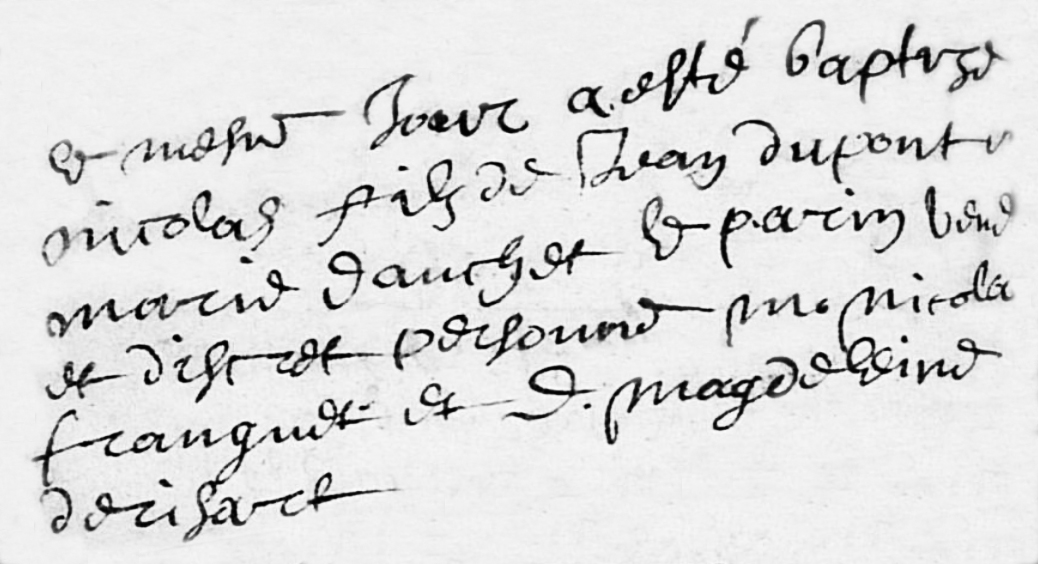 le mesme Jour a esté baptizé
nicolas fils de Jean dupont e
marie dauchet le parin vene
et discret personne me nicola
franquet et D. magdeleine
derisart